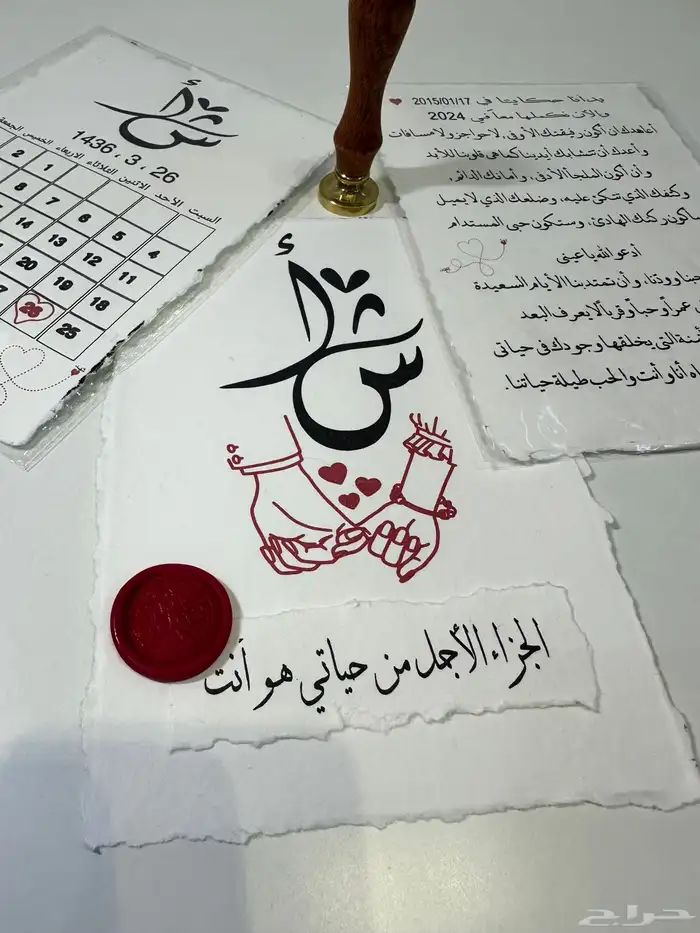 أ ش
1436 ، 3 ، 26
السبت الأحد الاثنين الثلاثاء الاربعاء الخميس الجمعة
1 2
4 5 6 7 8
11 12 13 14
18 19 20
25 26
بدأنا حكايتنا في 2015/01/17
والآن نكملها معاً في 2024
أعاهدك أن أكون رفيقتك الأوفى، لا حواجز ولا مسافات
وأعدك أن تتشابك أيدينا كما هي قلوبنا للأبد
وأن أكون الملجأ الأدفى، وأمانك الدائم
وكتفك الذي تتكئ عليه، وضلعك الذي لا يميل
سأكون ركنك الهادئ، وستكون حبي المستدام
أدعو الله ياعيني
حبنا وودّنا، وأن تمتد بنا الأيام السعيدة
عمراً وحباً وقرباً لا يعرف البعد
التي يخلقها وجودك في حياتي
أنا وأنت والحب طيلة حياتنا.
أ ش
الجزاء الأجمل من حياتي هو أنت
حراج